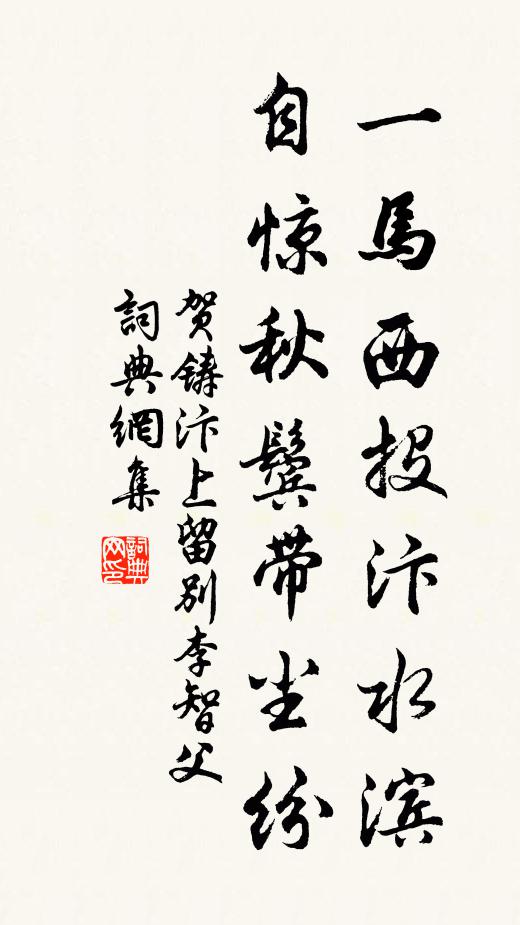 一馬西投汴水滨
自惊秋鬓带尘纷
贺铸汴上留别李智父
詞典網集
詞典网印